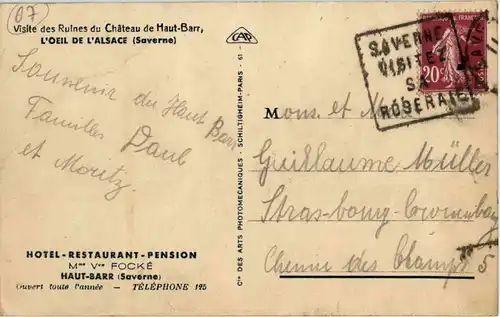 07
Visite des Ruines du Château de Haut-Barr,
L'OEIL DE L'ALSACE (Saverne)
Souvenir du Haut Barr
Familles Daul
et Moritz
HOTEL-RESTAURANT-PENSION
Mme Vve FOCKÉ
HAUT-BARR (Saverne)
Ouvert toute l'année — TÉLÉPHONE 195
CAP
Cie DES ARTS PHOTOMECANIQUES - SCHILTIGHEIM-PARIS - 61 -
SAVERNE
VISITEZ
SA
ROSERAIE
20c
Mons. et M
Guillaume Müller
Strasbourg-Cronenbourg
Chemin des Champs 5